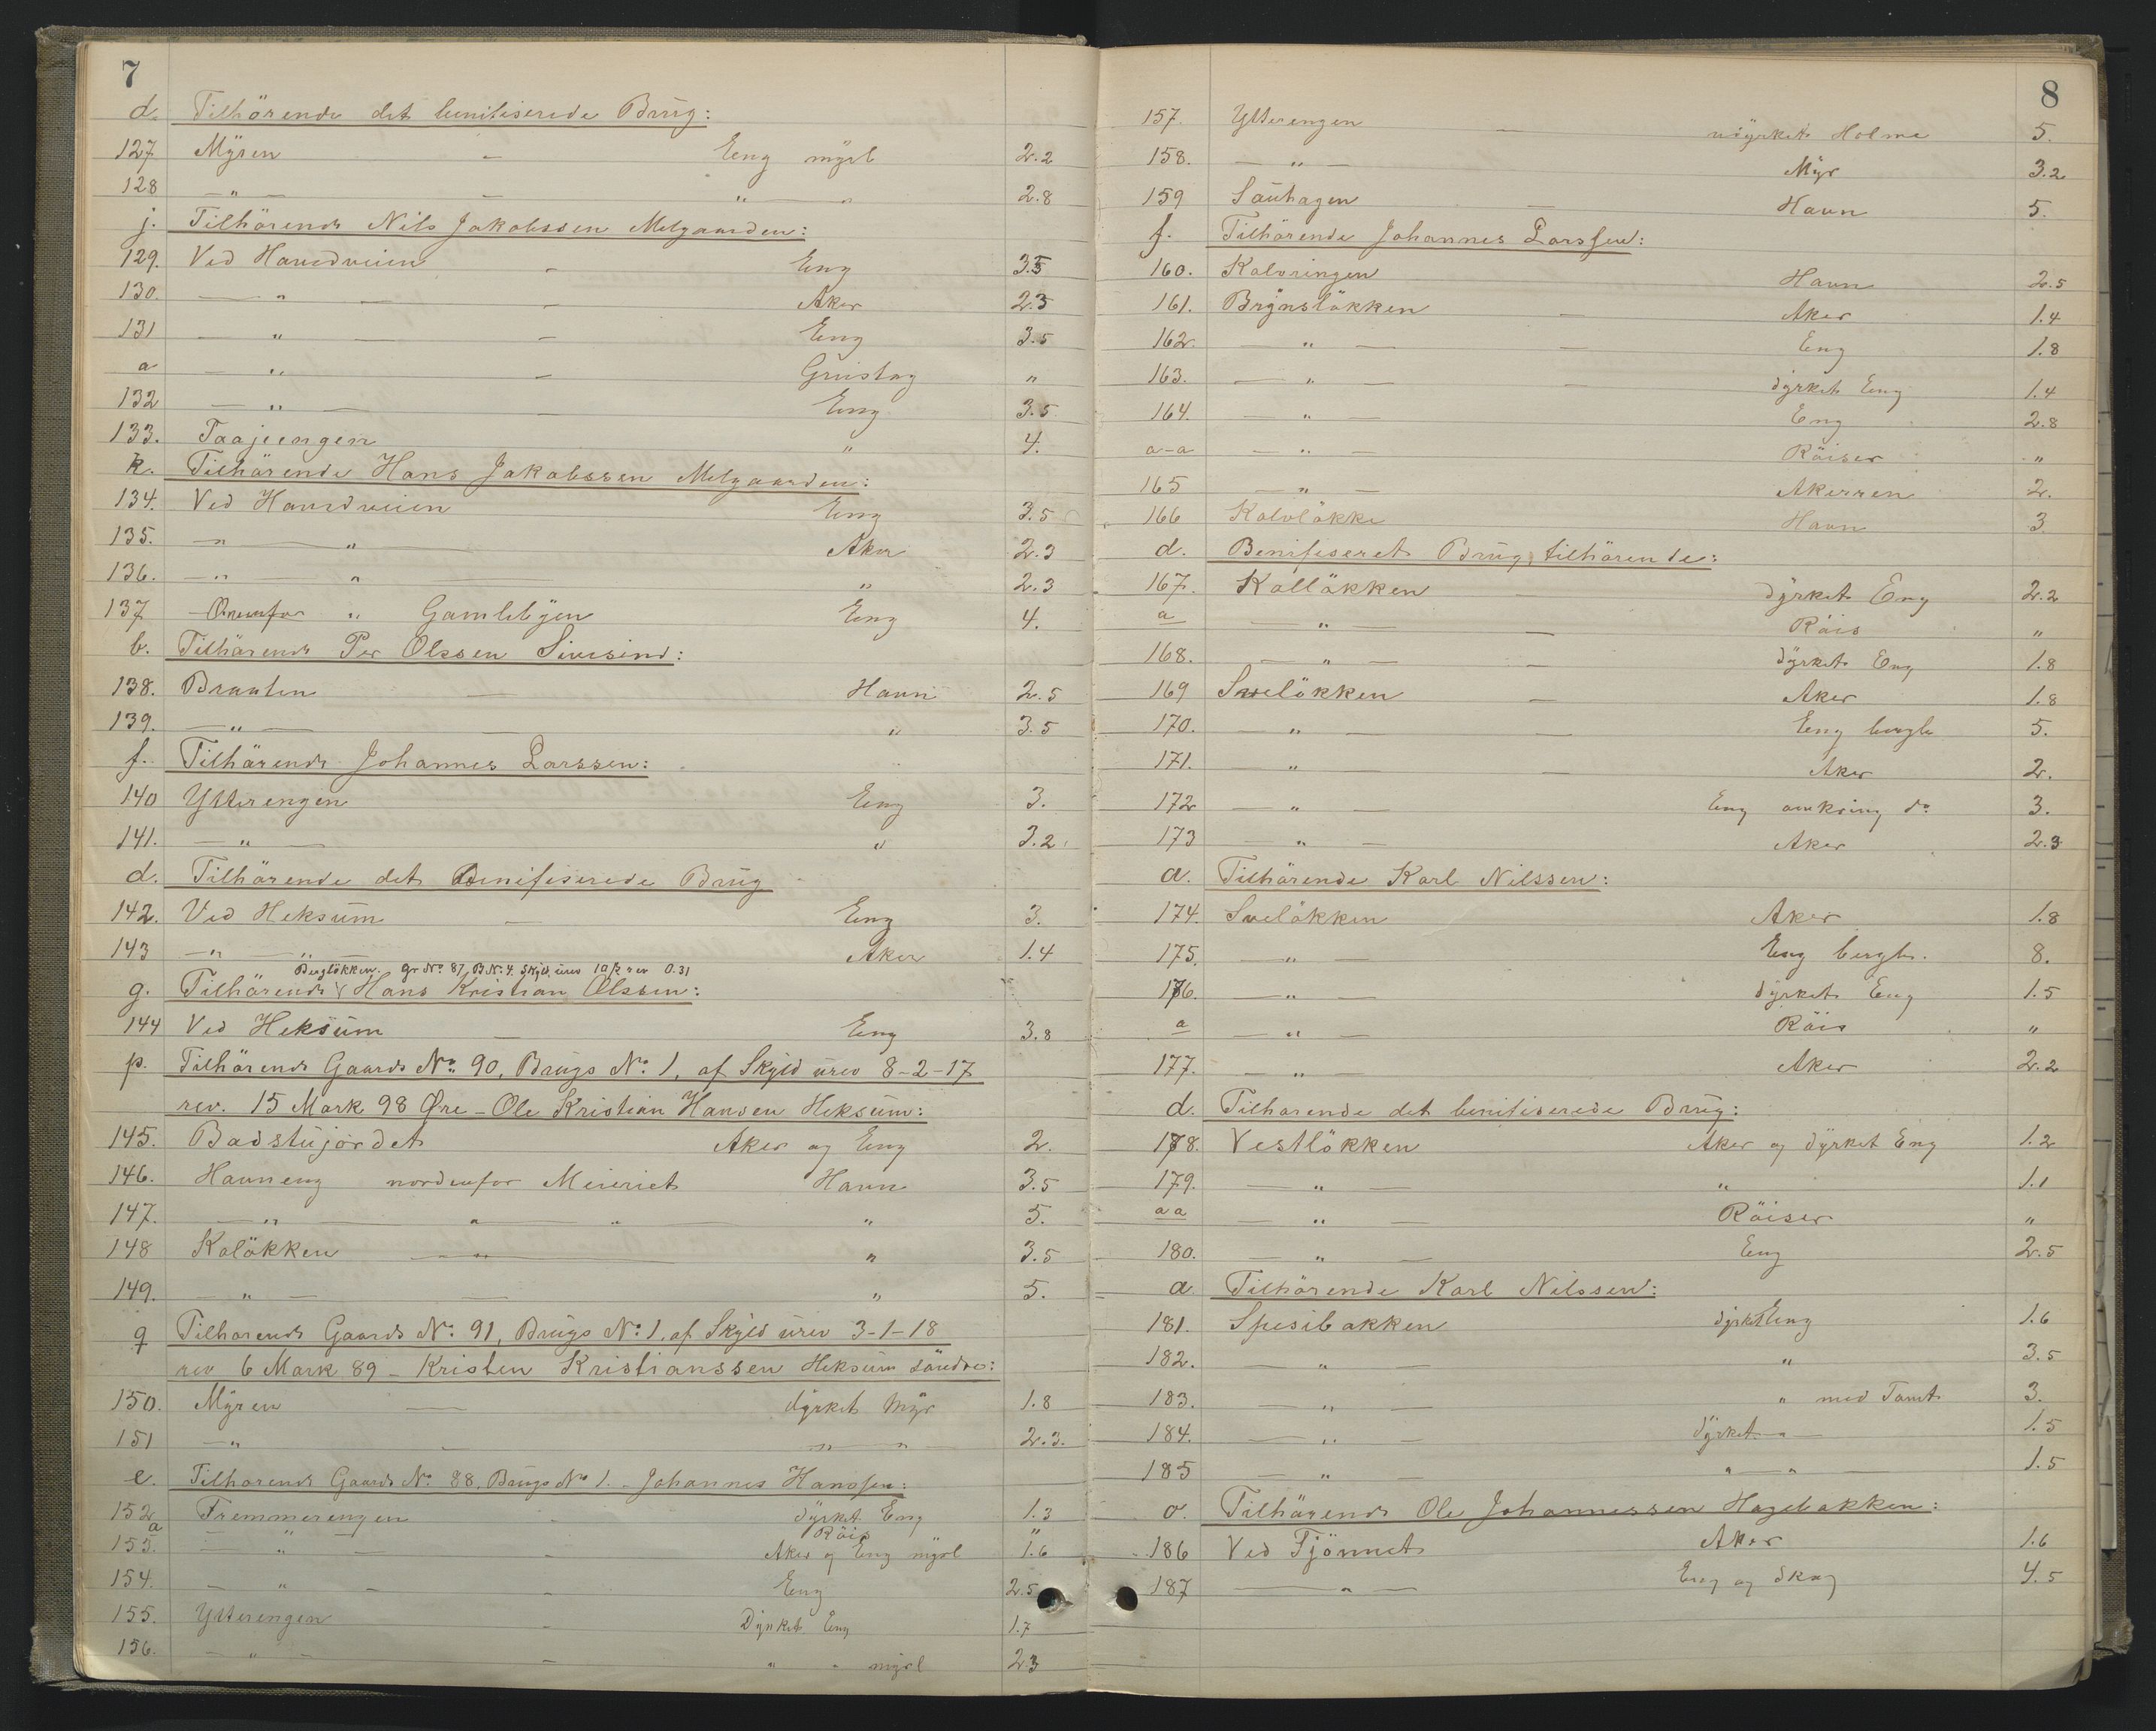 7
d. Tilhörende det benifiserede Brug:
127 Myren — Eng myrl 2.2
128 — " — — " — " 2.8
j. Tilhörende Nils Jakobssen Melgaarden:
129. Ved Hovedveien — Eng 3.5
130. — " — — Aker 2.3
131 — " — — Eng 3.5
a — " — Grustag "
132 — " — — Eng 3.5
133. Taajeengen " 4.
k. Tilhörende Hans Jakobssen Melgaarden:
134. Ved Hovedveien Eng 3.5
135. — " — " — Aker 2.3
136. — " — " — " 2.3
137 Ovenfor " Gamlebyen Eng 4.
b. Tilhörende Per Olssen Sivesind:
138. Braaten — Havn 2.5
139. — " — — " 3.5
f. Tilhörende Johannes Larssen:
140 Ytterengen Eng 3.
141. — " — " 3.2
d. Tilhörende det Benifiserede Brug
142. Ved Heksum — Eng 3.
143 — " — " — Aker 1.4
Bergløkken. Gr No. 87, B.No. 4. Skyld urev 10 ß rev 0.31
g. Tilhörende Hans Kristian Olssen:
144 Ved Heksum — Eng 3.8
p. Tilhörende Gaards No. 90, Brugs No. 1, af Skyld urev 8-2-17
rev. 15 Mark 98 Øre - Ole Kristian Hansen Heksum:
145. Badstujordet Aker og Eng 2.
146. Havneng nordenfor Meieriet Havn 3.5
147. — " — " — " — " 5.
148 Kolökken — " — " 3.5
149. — " — — " 5.
q Tilhörende Gaards No. 91, Brugs No. 1. af Skyld urev 3-1-18
rev 6 Mark 89 - Kristen Kristianssen Heksum söndre:
150. Myren — dyrket Myr 1.8
151 — " — — " — " — 2.3.
e. Tilhörende Gaards No. 88, Brugs No 1. - Johannes Hanssen:
152 Fremmerengen - dyrket Eng 1.3
a — " — Röis "
153. — " — - Aker og Eng myrl 1.6
154. — " — - Eng 2.5
155. Ytterengen - Dyrket Eng 1.7
156. — " — - " - myrl 2.3
8
157. Ytterengen — udyrket Holme 5.
158. — " — Myr 3.2
159 Sauhagen — Havn 5.
f. Tilhörende Johannes Larssen:
160. Kalvringen Havn 2.5
161. Brynslökken — Aker 1.4
162. — " — — Eng 1.8
163. — " — — dyrket Eng 1.4
164. — " — Eng 2.8
a-a — " — Röiser "
165 — " — Akerren 2.
166 Kalvlökke Havn 3
d. Benifiseret Brug, tilhörende:
167. Kallökken — dyrket Eng 2.2
a — " — — Röis "
168. — " — — dyrket Eng 1.8
169 Svelökken — Aker 1.8
170. — " — — Eng bergl. 5.
171. " — — Aker 2.
172 — " — Eng omkring do 3.
173 — " — Aker 2.3
a. Tilhörende Karl Nilssen:
174. Svelökken Aker 1.8
175. — " — Eng bergl. 8.
176. — " — dyrket Eng 1.5
a — " — Röis "
177. — " — Aker 2.2
d. Tilhörende det benifiserede Brug:
178. Vestlökken Aker og dyrket Eng 1.2
179. — " — " 1.1
aa — " — Röiser "
180. — " — Eng 2.5
a Tilhörende Karl Nilssen:
181. Spesibakken dyrket Eng 1.6
182. — " — " 3.5
183. — " — " med Tomt 3.
184. — " — dyrket — " — 1.5
185 — " — " — " — 1.5
o. Tilhörende Ole Johannessen Hagebakken:
186 Ved Tjönnet Aker 1.6
187 — " — Eng og Skog 4.5